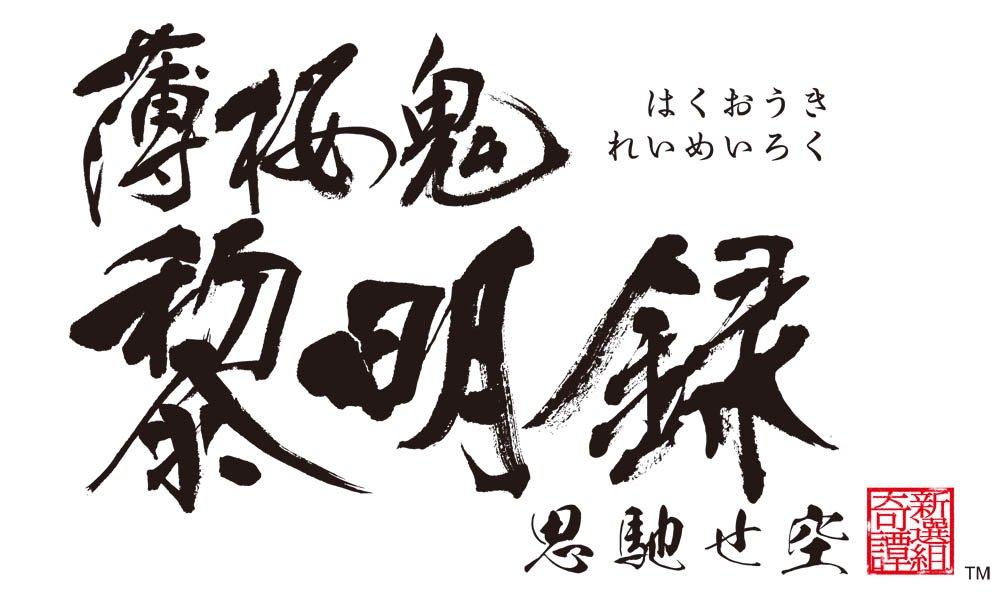 薄桜鬼
はくおうき
れいめいろく
黎明録
思馳せ空
新選組
奇譚
TM